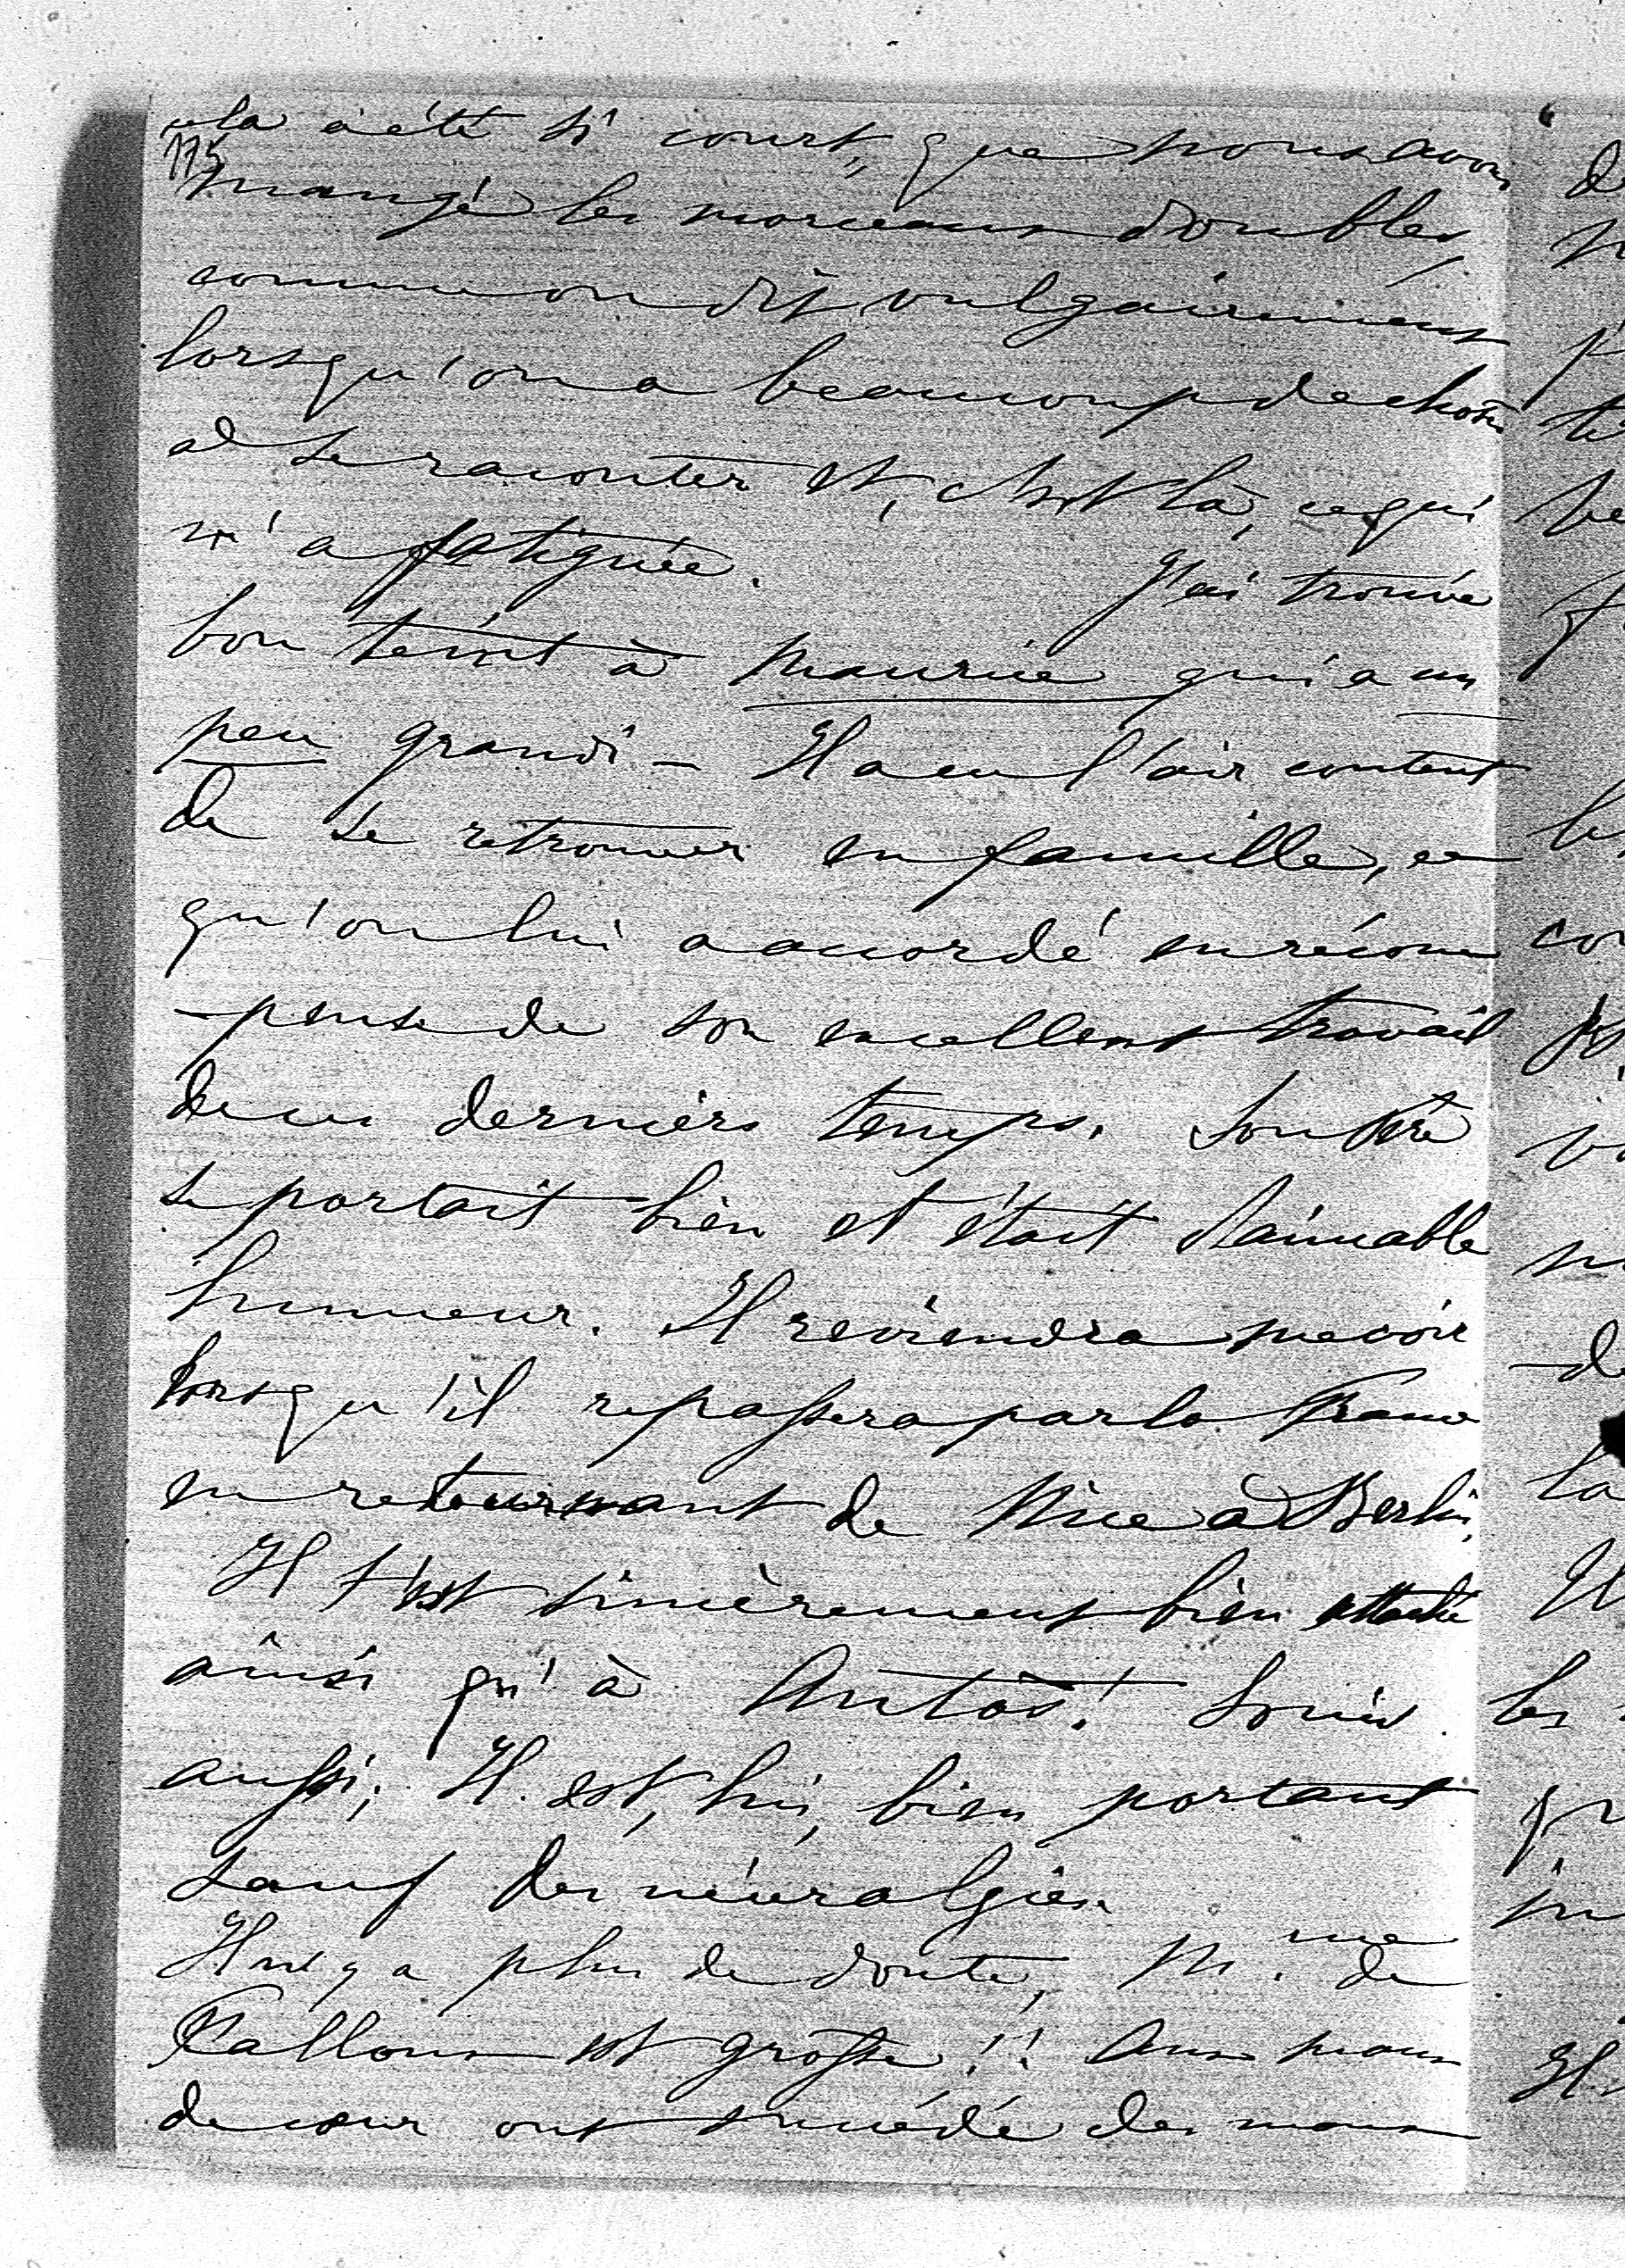 cela a été si court, que nous avons
175
mangé les morceaux doubles,
comme on dit vulgairement
lorsqu'on a beaucoup de choses
à se raconter et, c'est là, ce qui
m'a fatiguée. J'ai trouvé
bon teint à Maurice qui a un
peu grandi – Il a eu l'air content
de se retrouver en famille, ce
qu'on lui a accordé en récom
-pense de son excellent travail
de ces derniers temps. Son Père
se portait bien et était d'aimable
humeur. Il reviendra me voir
lorsqu'il repassera par la France
en retournant de Nice à Berlin.
Il t'est sincèrement bien attaché
ainsi qu'à Louis
aussi; Il est, lui, bien portant
sauf des névralgies.
Il n'y a plus de doute, Mme de
est grosse!! Aux maux
de cœur ont succédé des maux